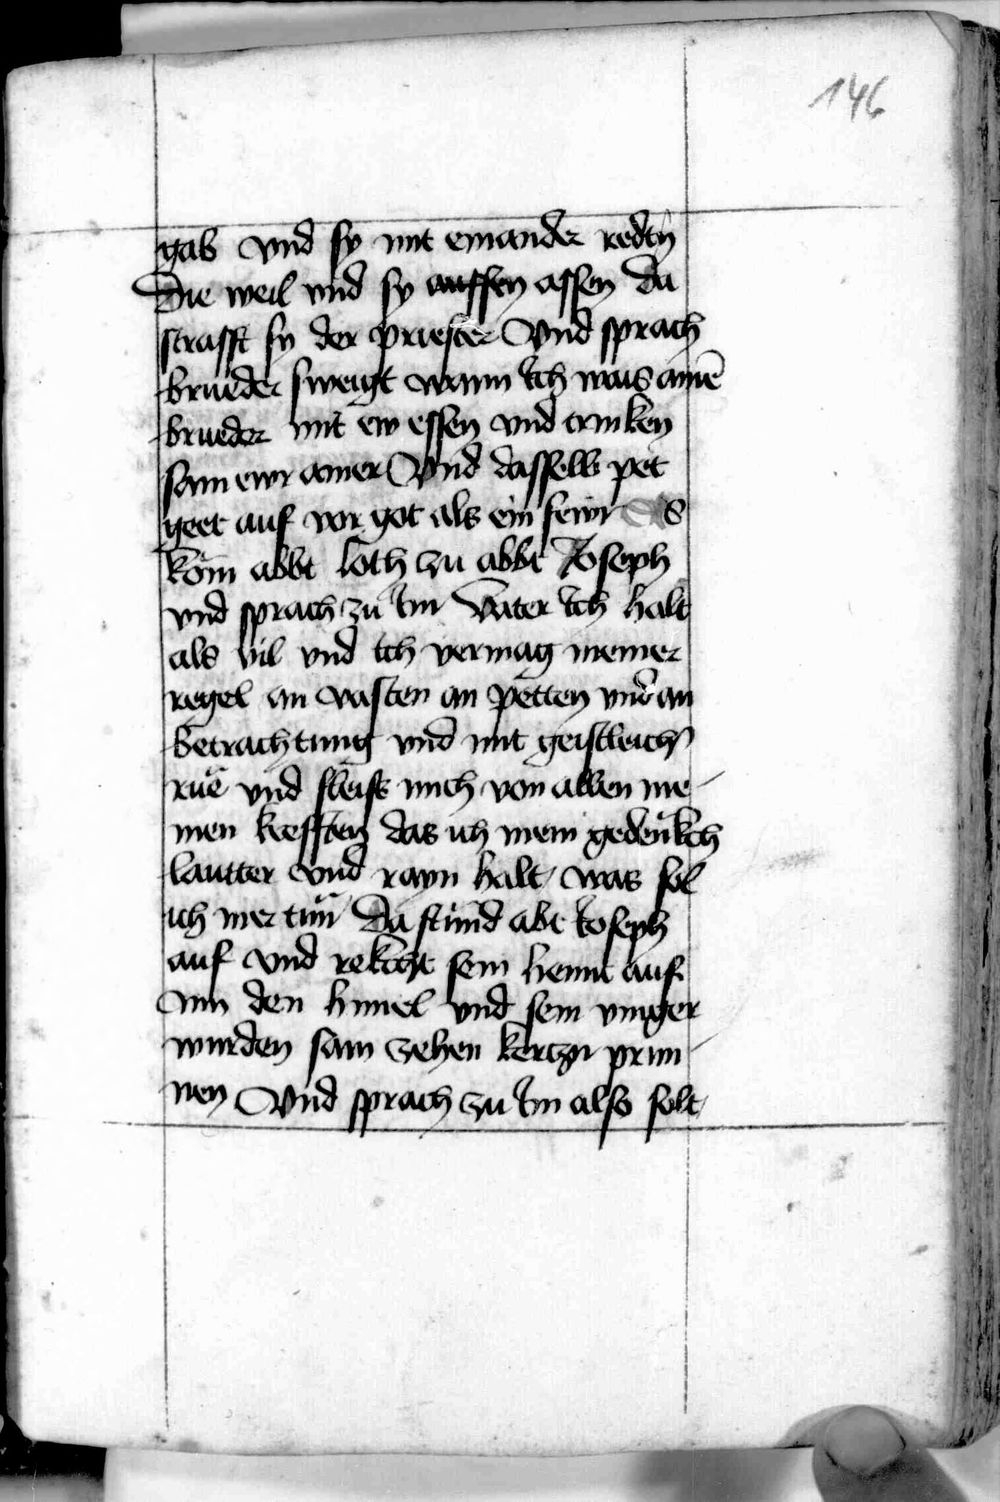 146
gab vnd sy mit einander redtñ
Die weil vnd sy auffsen assen da
strafft sy der priester Vnd sprach
brueder sweigt wann Ich wais ainē
brueder mit ew essen vnd trinken
sam ewr ainer Vnd dasselb pet
geet auf vor got als ein fewr Es
köm abbt loth zu abbt Joseph
vnd sprach zu Im Vater Ich halt
als vil vnd ich vermag meiner
regel an vasten an petten vnd an
betrachtung vnd mit geistleich
rue vnd fleiss mich von allen mei
nen krefften das ich mein gedenkch
lautter vnd rayn halt was sol
ich mer tun Da stund abt Joseph
auf vnd rekcht sein hennt auf
Inn den himel vnd sein vinger
wurden sam zehen kerczn prin
nen Vnd sprach zu Im also solt